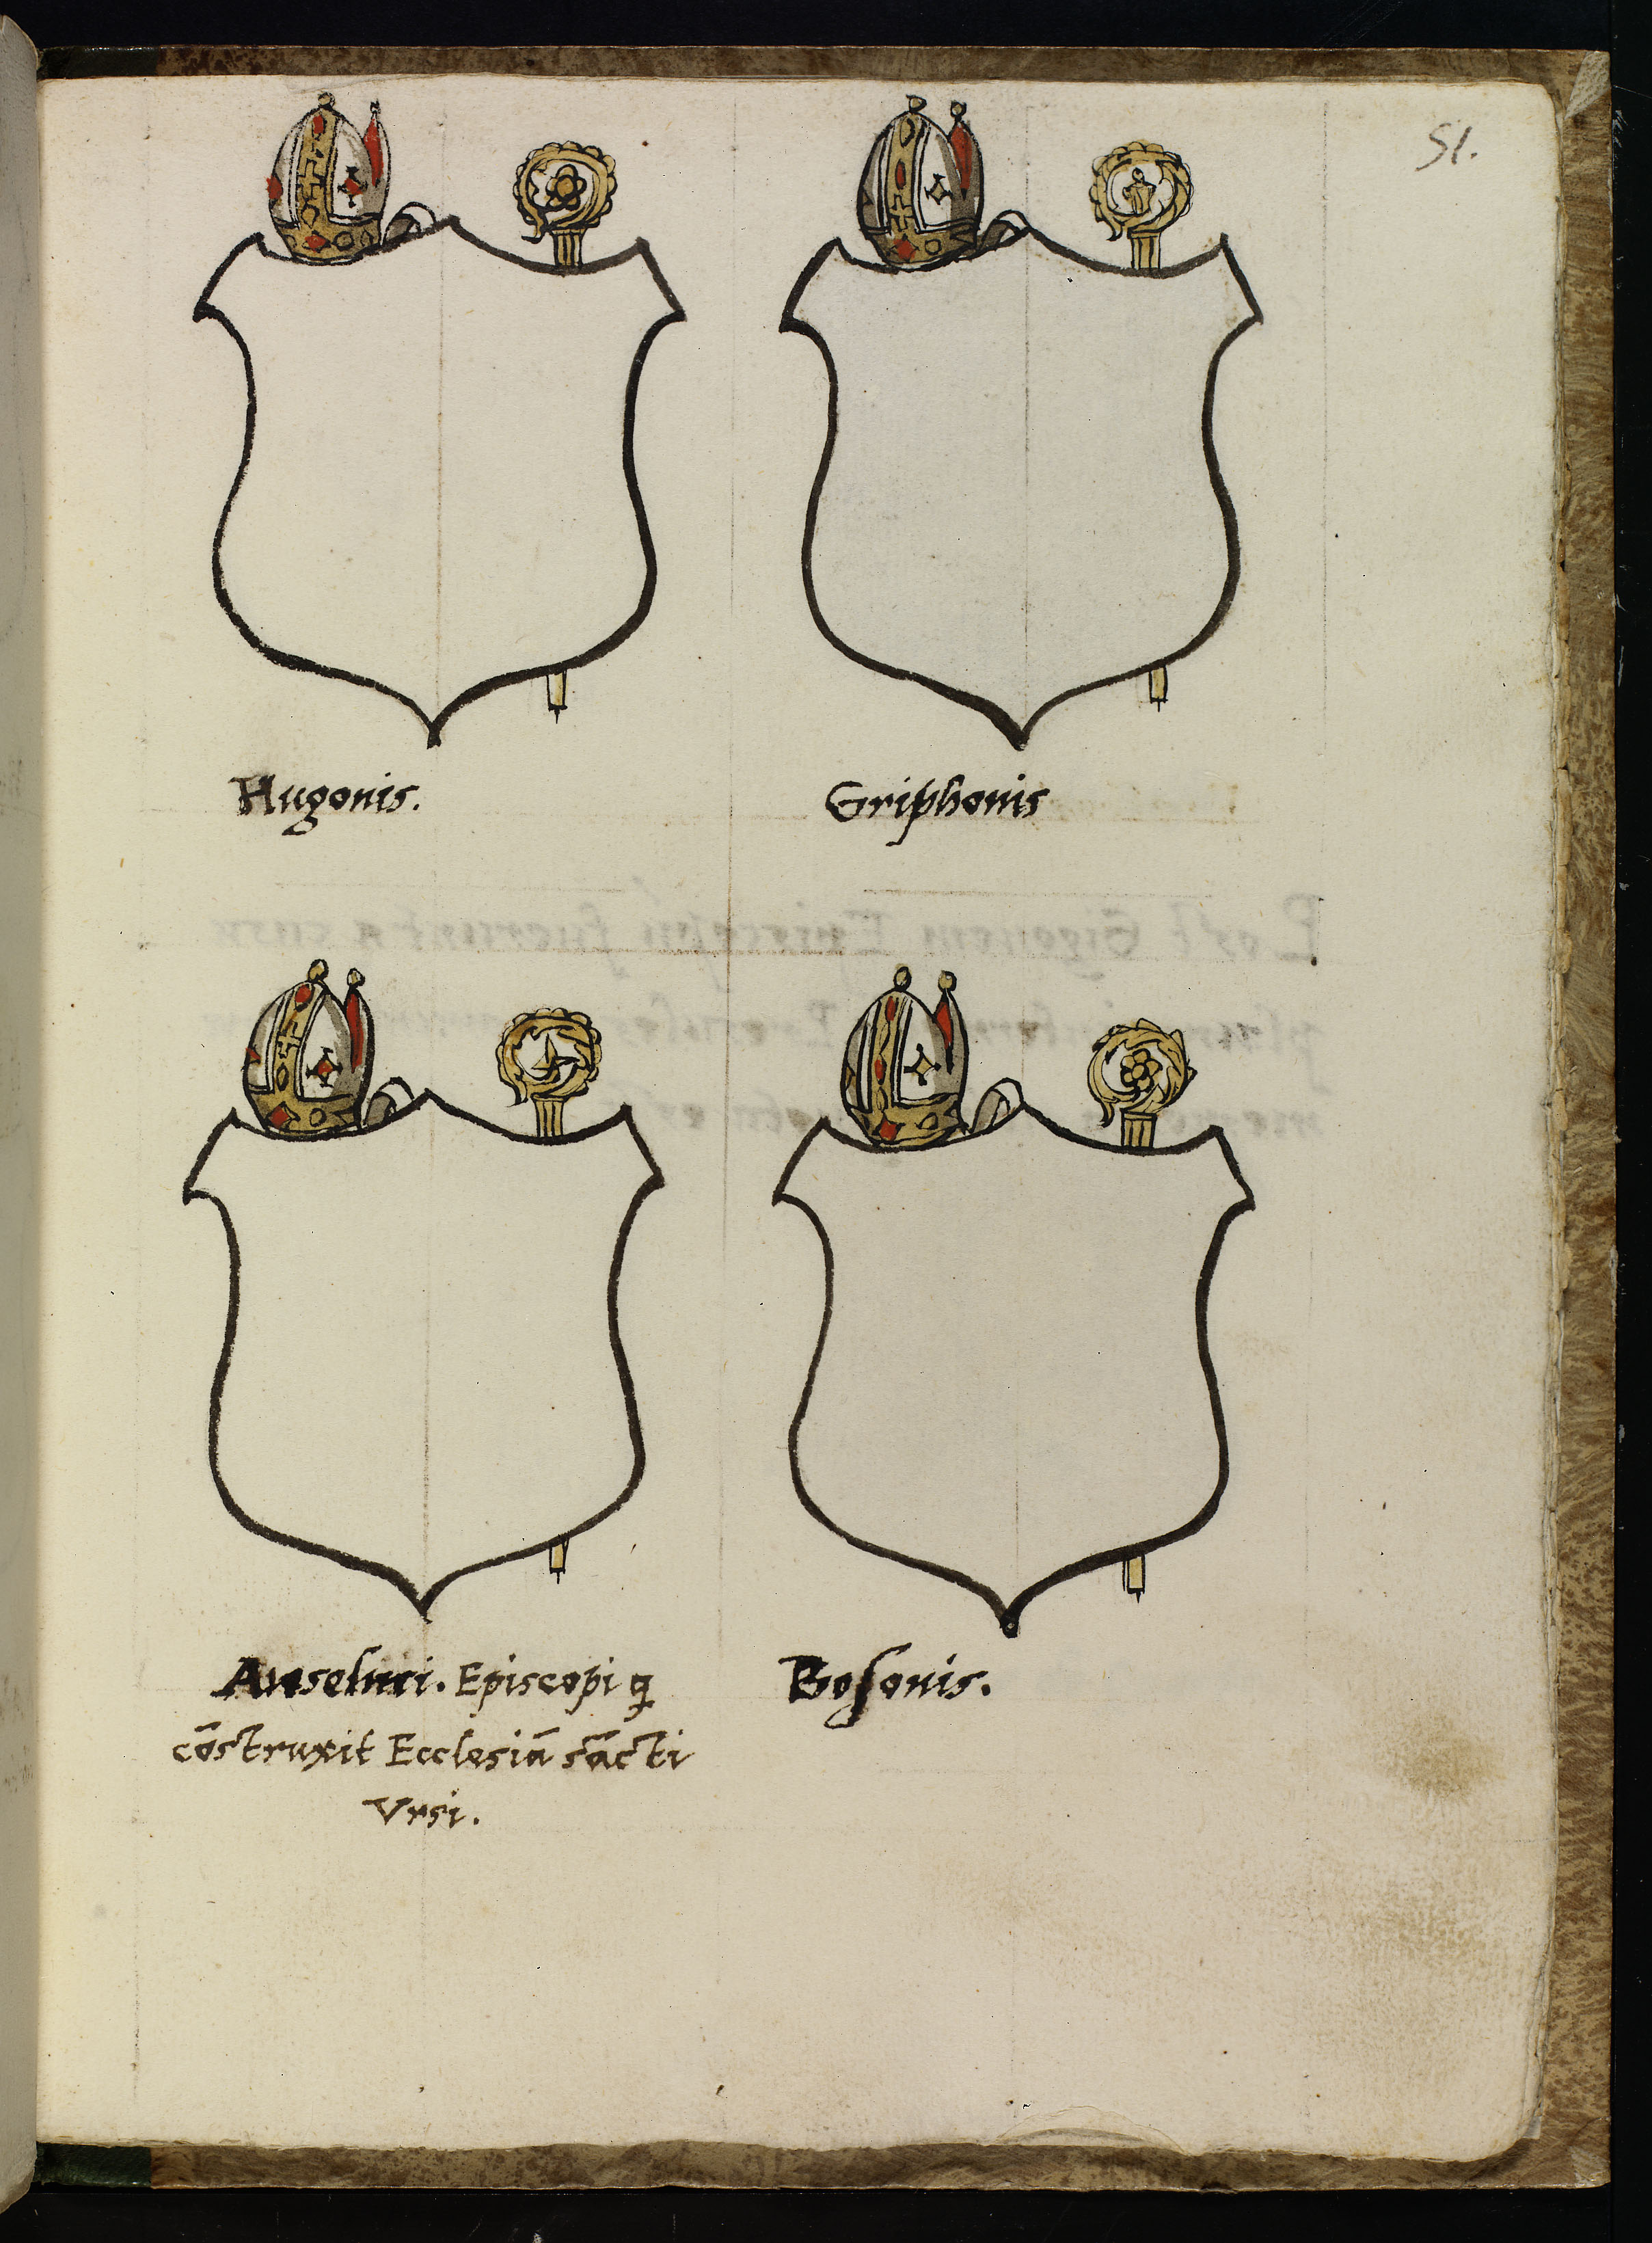 51.
Hugonis.
Griphonis
Anselmi. Episcopi q
cōstruxit Ecclesiā sācti
Vrsi.
Bosonis.